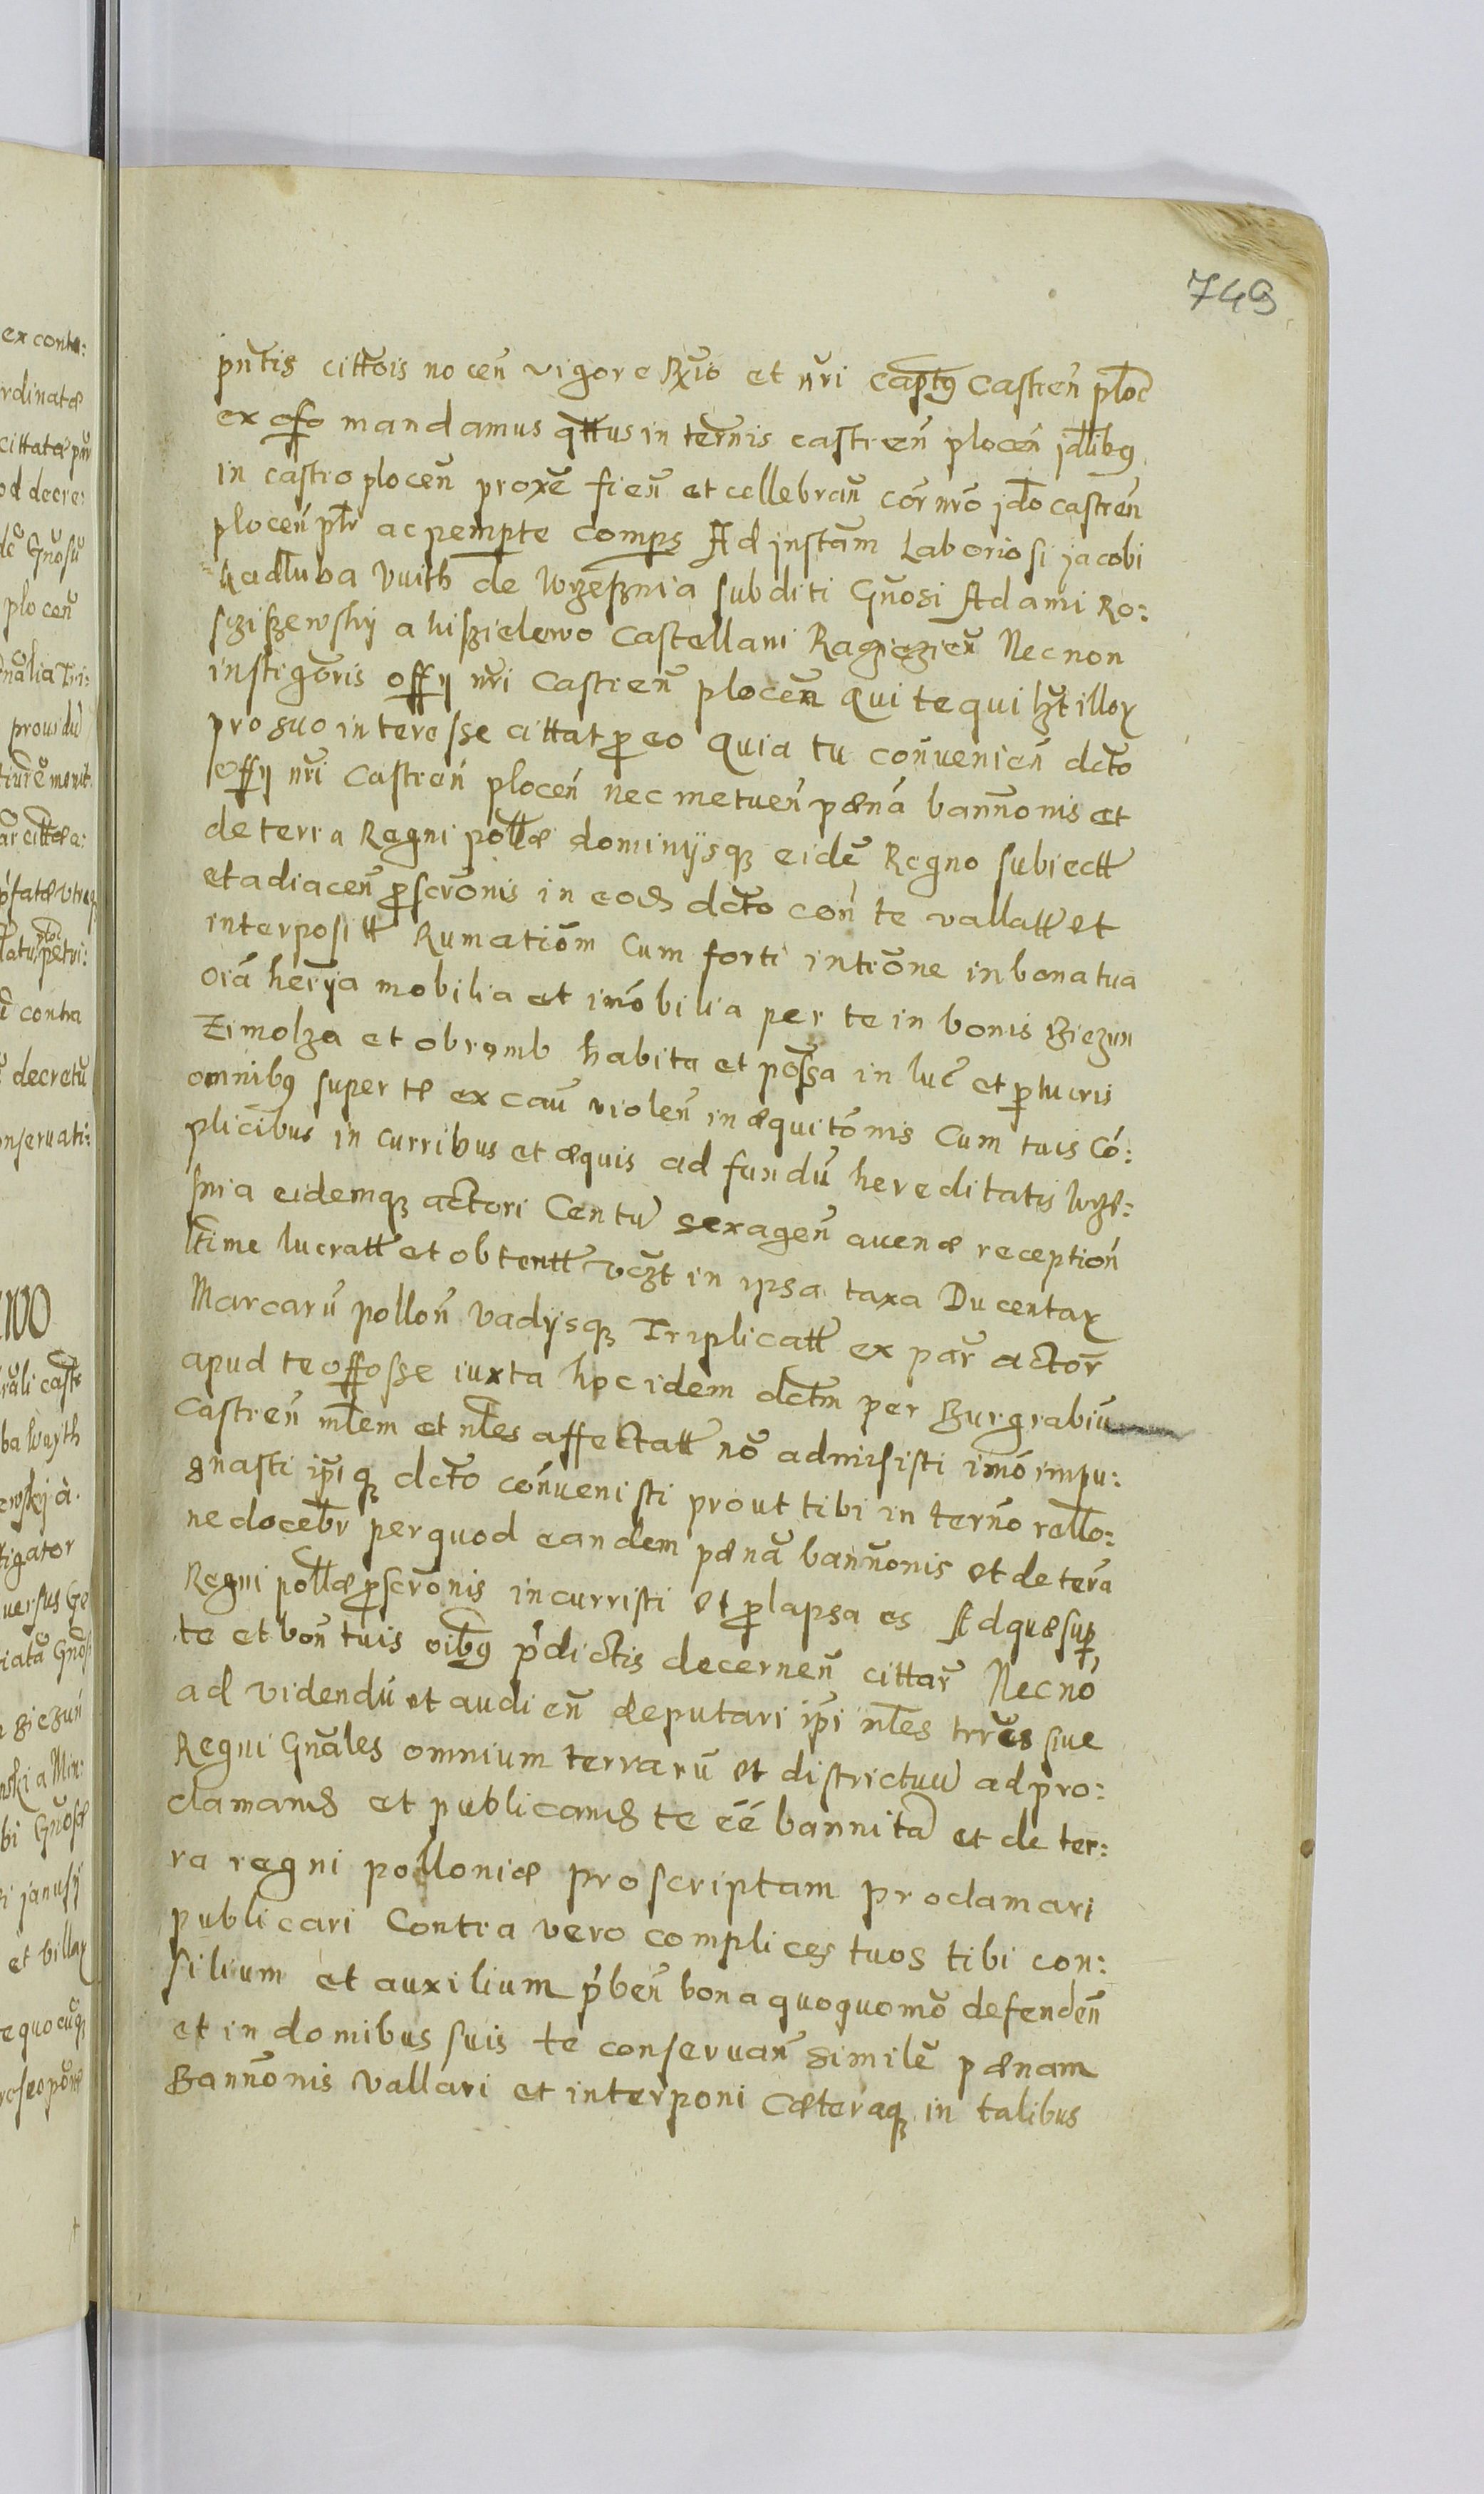 749
pntis cittois nocen vigore Rxio et nri captus Castren ploc
ex offo mandamus qttus in ternis castren plocen jdlibus
in castro plocen proxe fien et cellebran cor nro jdo castren
plocen ptr ac pempte comps Ad jnstam Laboriosi jacobi
Kadluba Vuith de Wrzeßnia subditi Gnosi Adami Ro:
sziszewskij a kißielewo Castellani Ragiezien Nec non
instigoris offij nri Castren plocen qui te qui hzt illor
pro suo interesse cittat pro eo quia tu convenien dcto
offij nri Castren plocen nec metuen pæna bannonis et
de terra Regni pollæ dominijsq eide Regno subiectt
et adiacen proscronis in eod dcto con te vallatt et
interpositt Rumatiom cum forti intione in bona tua
oia herija mobilia et imobilia per te in bonis Biezun
Zimolza et obremb habita et possa in luc et perlucris
omnibus super te ex cau violen inæquitonis Cum tuis Co:
plicibus in curribus et æquis ad fundu hereditatis Wrze:
snia eidemq actori Centu sexagen avenæ reception
ltime lucratt et obtentt vczt in ipsa taxa Ducentar
Marcaru pollon vadijsq Triplicatt ex par actor
apud te offosse iuxta hoc idem dctm per Burgrabiu
Castren mlem et nles affectatt no admisisti imo impu:
gnasti ipiq dcto convenisti prout tibi in terno rello:
ne docebr per quod eandem pæna bannonis et de terra
Regni pollæ proscronis incurristi et prolapsa es Ad quæ sup
te et bon tuis oibus pdictis decernen cittar Necno
ad videndu et audien deputari ipi nles trres sive
Regni Gnales omnium terraru et districtuu ad pro:
clamand et publicand te ee bannita et de ter:
ra regni polloniæ proscriptam proclamari
publicari Contra vero complices tuos tibi con:
silium et auxilium pben bona quoquomo defenden
et in domibus suis te conservan simile pænam
Bannonis vallari et interponi Cæteraq in talibus